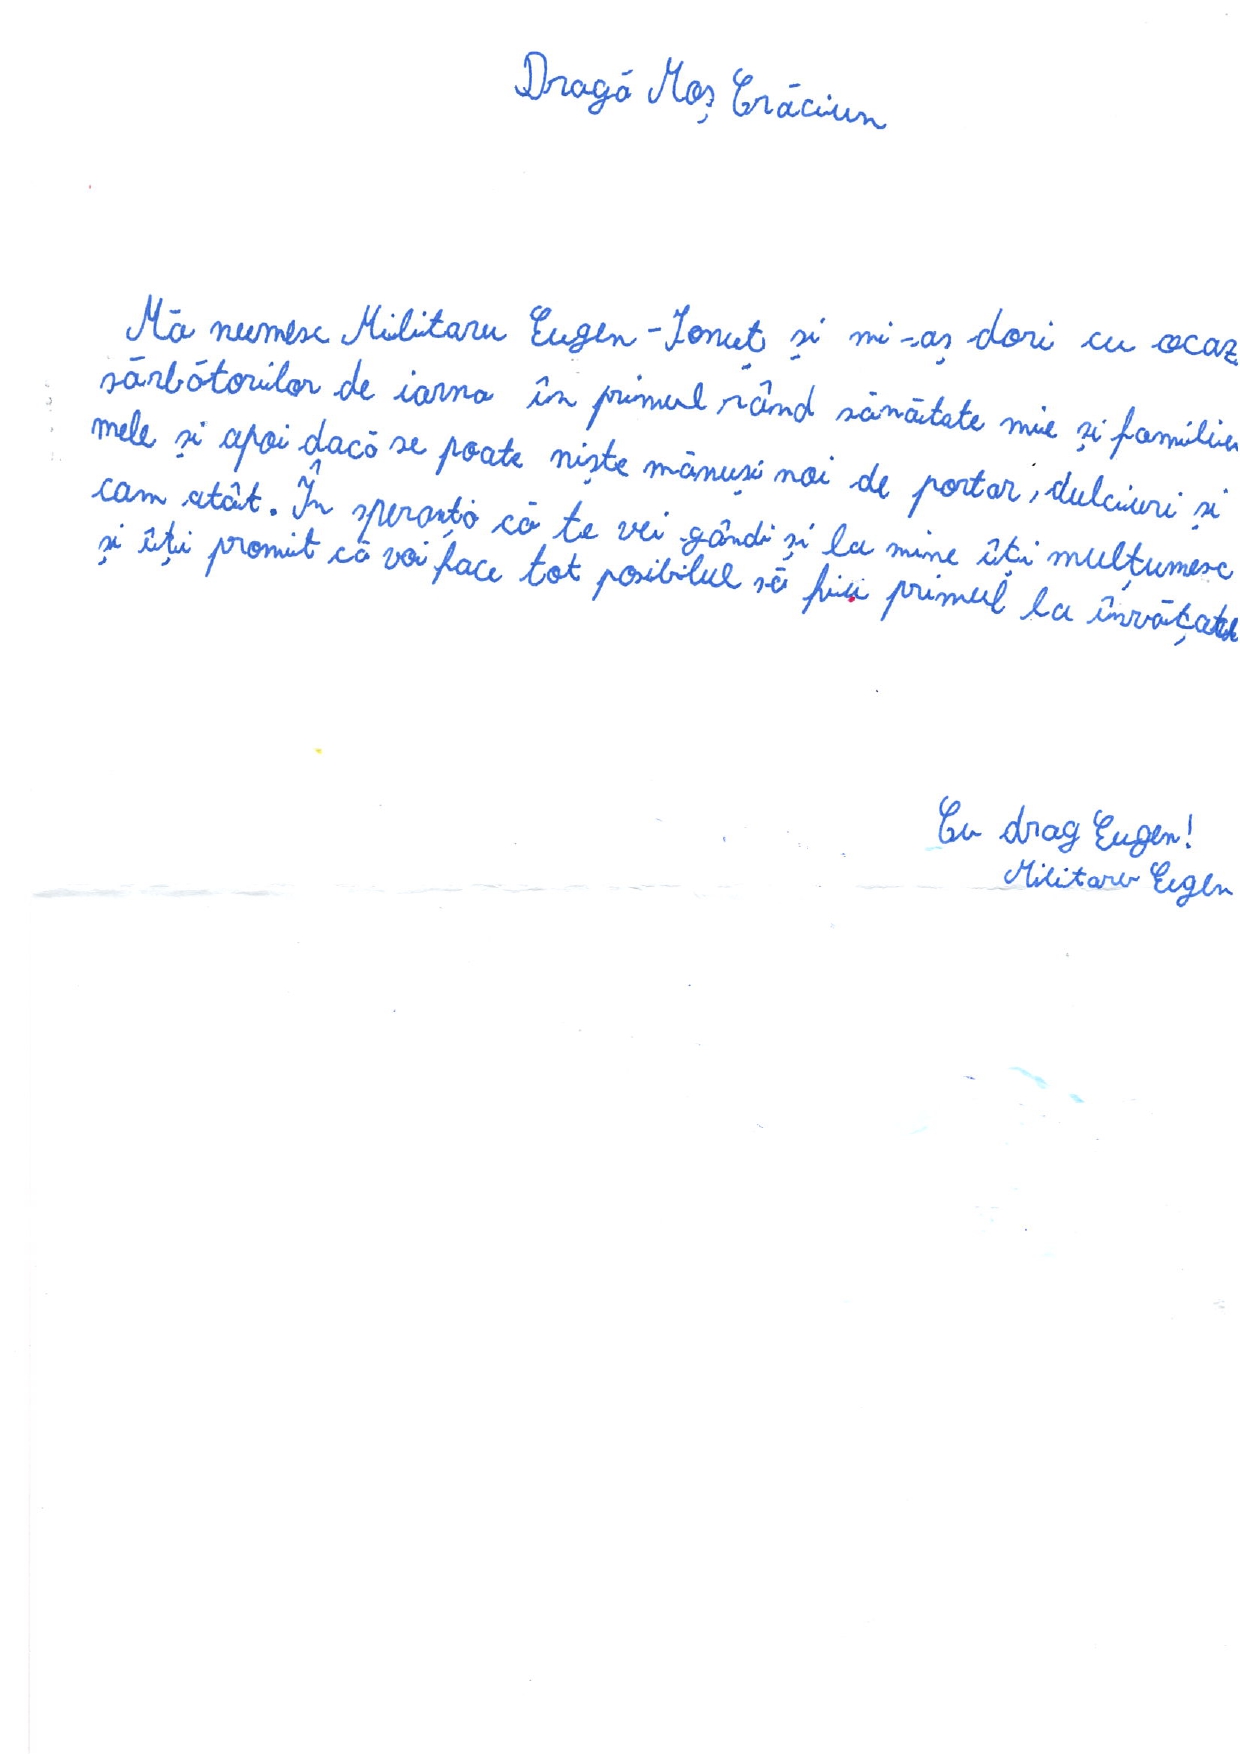 Dragă Moș Crăciun
Mă numesc Militaru Eugen-Ionuț și mi-aș dori cu ocaz
sărbătorilor de iarna în primul rând sănătate mie și familie
mele și apoi dacă se poate niște mănuși noi de portar, dulciuri și
cam atât. În speranța că te vei gândi și la mine îți mulțumesc
și îți promit că voi face tot posibilul să fiu primul la învățat
Cu drag Eugen!
Militaru Eugen